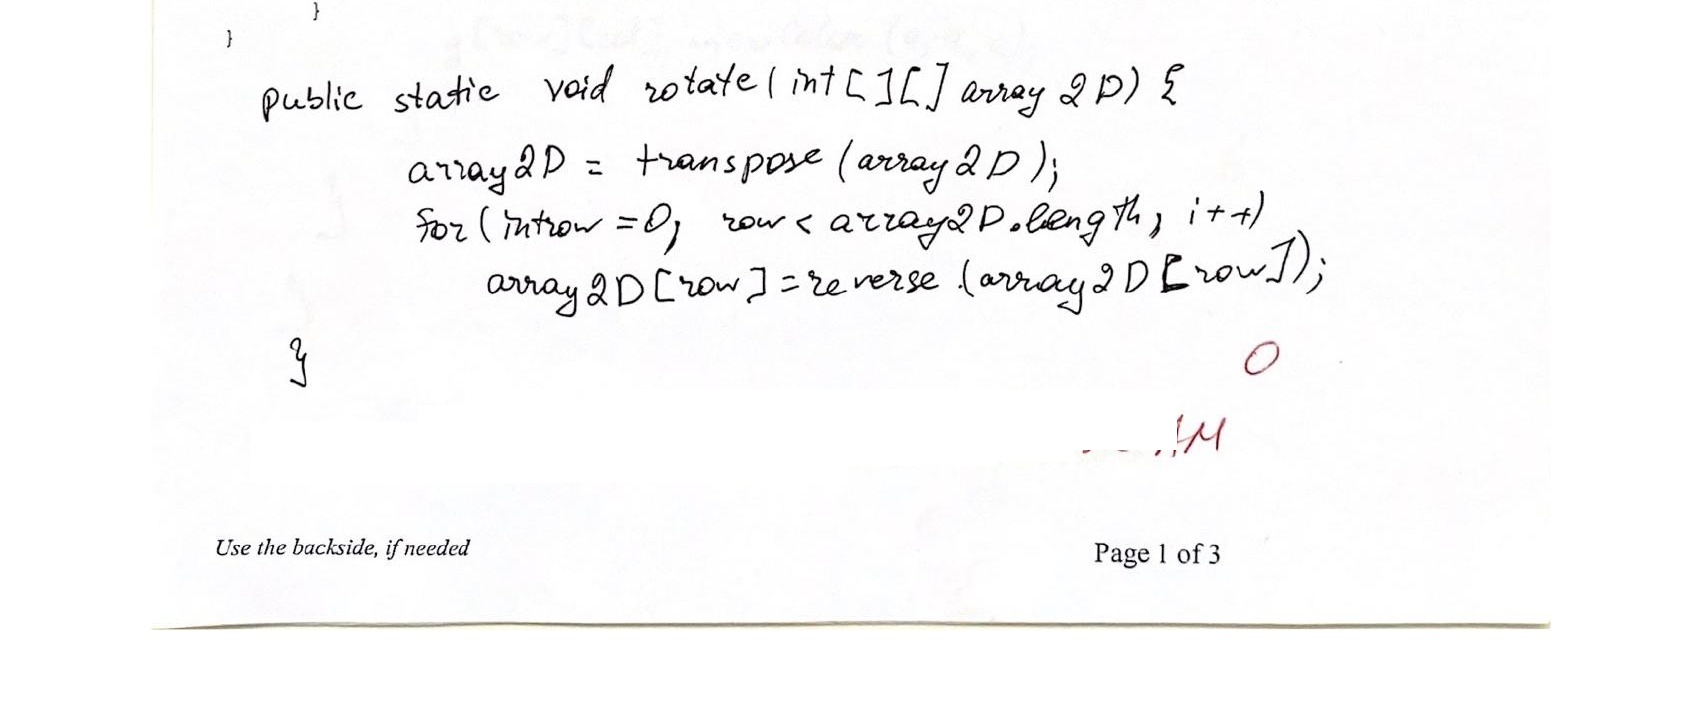 }
}
public static void rotate(int[][] array2D) {
array2D = transpose(array2D);
for(introw=0; row<array2D.length; i++)
array2D[row]=reverse(array2D[row]);
}
0
Use the backside, if needed
Page 1 of 3